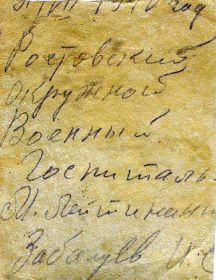 год
Ростовский
окружной
Военный
Госпиталь.
М. Лейтинант
Забалуев И. С